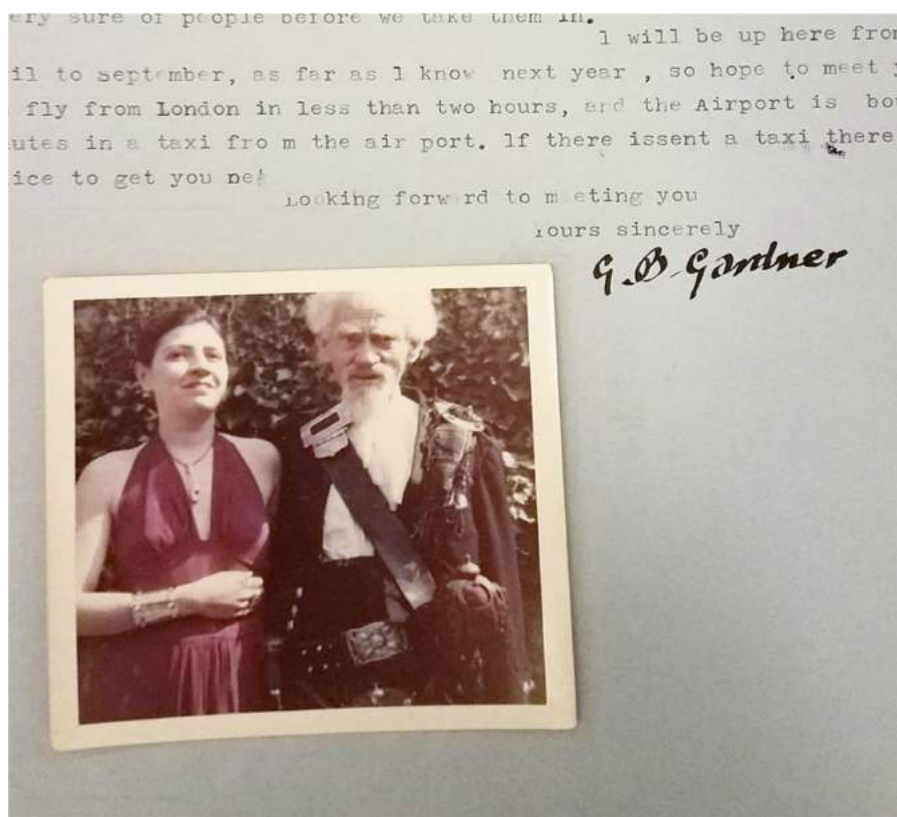 ery sure of people before we take them in.
l will be up here from
il to september, as far as l know next year , so hope to meet
fly from London in less than two hours, and the Airport is bo
utes in a taxi fro m the air port. lf there issent a taxi there
ice to get you
Looking forw rd to m eting you
Yours sincerely
G.B.Gardner